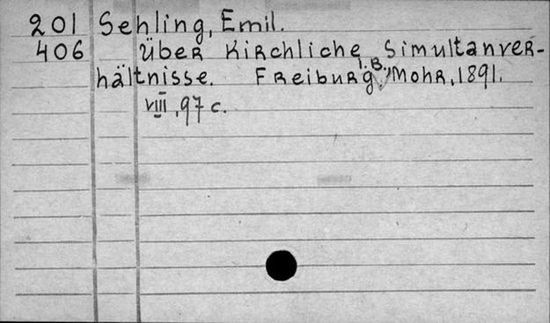 201 Sehling, Emil.
406 Über kirchliche Simultanver-
hältnisse. Freiburg i.B., Mohr, 1891.
VIII, 97 c.